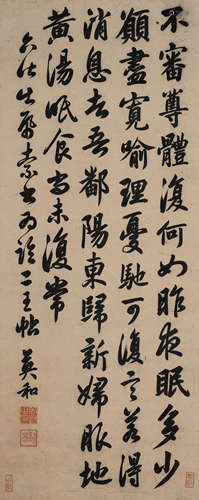 不審尊體復何如昨夜眠多少
願盡寬喻理憂馳可復言若得
消息去吾鄱陽東歸新婦服地
黃湯眠食尚未復常
索書為臨二王帖 英和